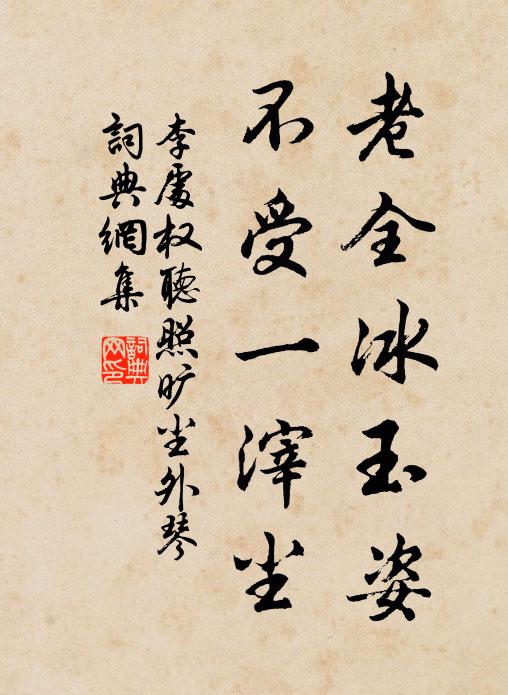 老全冰玉姿
不受一滓尘
李處权聽照旷尘外琴
詞典網集
詞典网印